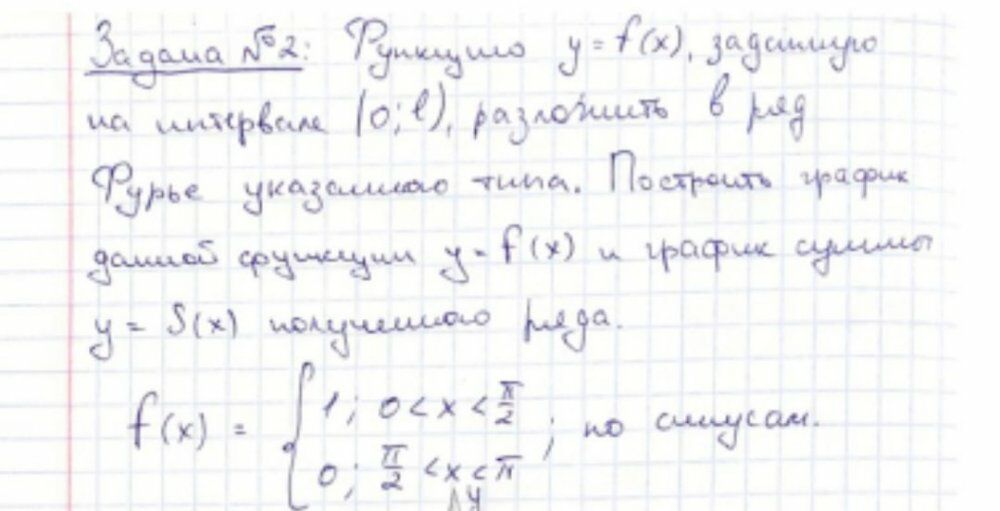 Задача №2: Функцию y = f(x), заданную
на интервале (0; l), разложить в ряд
Фурье указанного типа. Построить график
данной функции y = f(x) и график суммы
y = S(x) полученного ряда.
f(x) = { 1; 0 < x < π/2
0; π/2 < x < π ; по синусам.
y